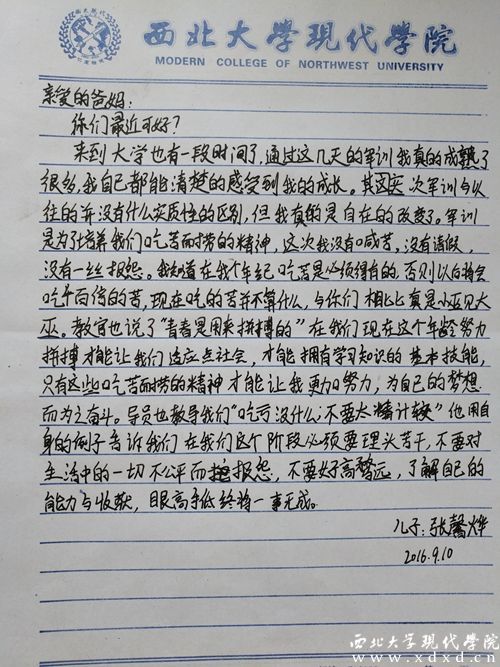 西北大学现代学院
西北大學現代學院
MODERN COLLEGE OF NORTHWEST UNIVERSITY
亲爱的爸妈：
你们最近可好？
来到大学也有一段时间了，通过这几天的军训我真的成熟了
很多，我自己都能清楚的感受到我的成长。其实 次军训与以
往的并没有什么实质性的区别，但我真的是自在的改变了。军训
是为了培养我们吃苦而劳的精神，这次我没有喊苦，没有请假，
没有一丝报怨。我知道在我个年纪吃苦是必须得有的，否则以后将会
吃千百倍的苦，现在吃的苦并不算什么，与你们相比真是小巫见大
巫。教官也说了“青春是用来拼搏的”在我们现在这个年龄努力
拼搏才能让我们适应点社会，才能拥有学习知识的基本技能，
只有这些吃苦而劳的精神才能让我更加努力，为自己的梦想
而为之奋斗。导员也教导我们“吃亏没什么，不要太精计较”他用自
身的例子告诉我们在我们这个阶段必须要埋头苦干，不要对
生活中的一切不公平而报怨，不要好高骛远，了解自己的
能力与收获，眼高手低终将一事无成。
儿子：张馨烨
2016.9.10
西北大学现代学院
www.xdxd.cn